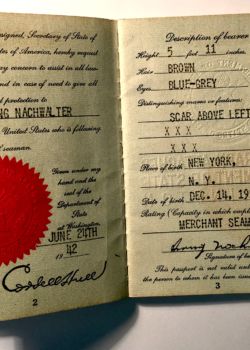 signed, Secretary of State of
tes of America, hereby request
cerning to assist in all law-
and in case of need to give all
d protection to
NG NACHWALTER
United States who is following
f seaman.
Given under my
hand and the
seal of the
Department of
State
at Washington,
JUNE 24TH
19 42
Cordell Hull
2
Description of bearer
Height 5 feet 11 inches
Hair BROWN
Eyes BLUE-GREY
Distinguishing marks or features:
SCAR ABOVE LEFT
X X X
X X X
Place of birth NEW YORK,
N. Y.
Date of birth DEC. 14, 19
Rating (Capacity in which empl
MERCHANT SEAM
Signature of be
This passport is not valid unle
the person to whom it has been issu
3